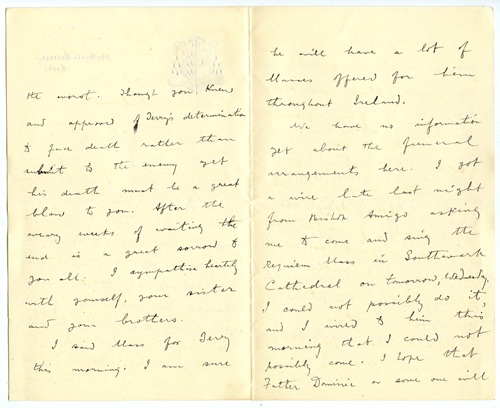 the worst. Though you knew
and approved of Terry's determination
to face death rather than
submit to the enemy yet
his death must be a great
blow to you. After the
weary weeks of waiting the
end is a great sorrow to
you all. I sympathise heartily
with yourself, your sister
and your brothers.
I said Mass for Terry
this morning. I am sure
he will have a lot of
Masses offered for him
throughout Ireland.
We have no information
yet about the funeral
arrangements here. I got
a wire late last night
from Bishop Amigo asking
me to come and sing the
Requiem Mass in Southwark
Cathedral on tomorrow, Wednesday.
I could not possibly do it,
and I wired to him this
morning that I could not
possibly come. I hope that
Father Dominic or some one will